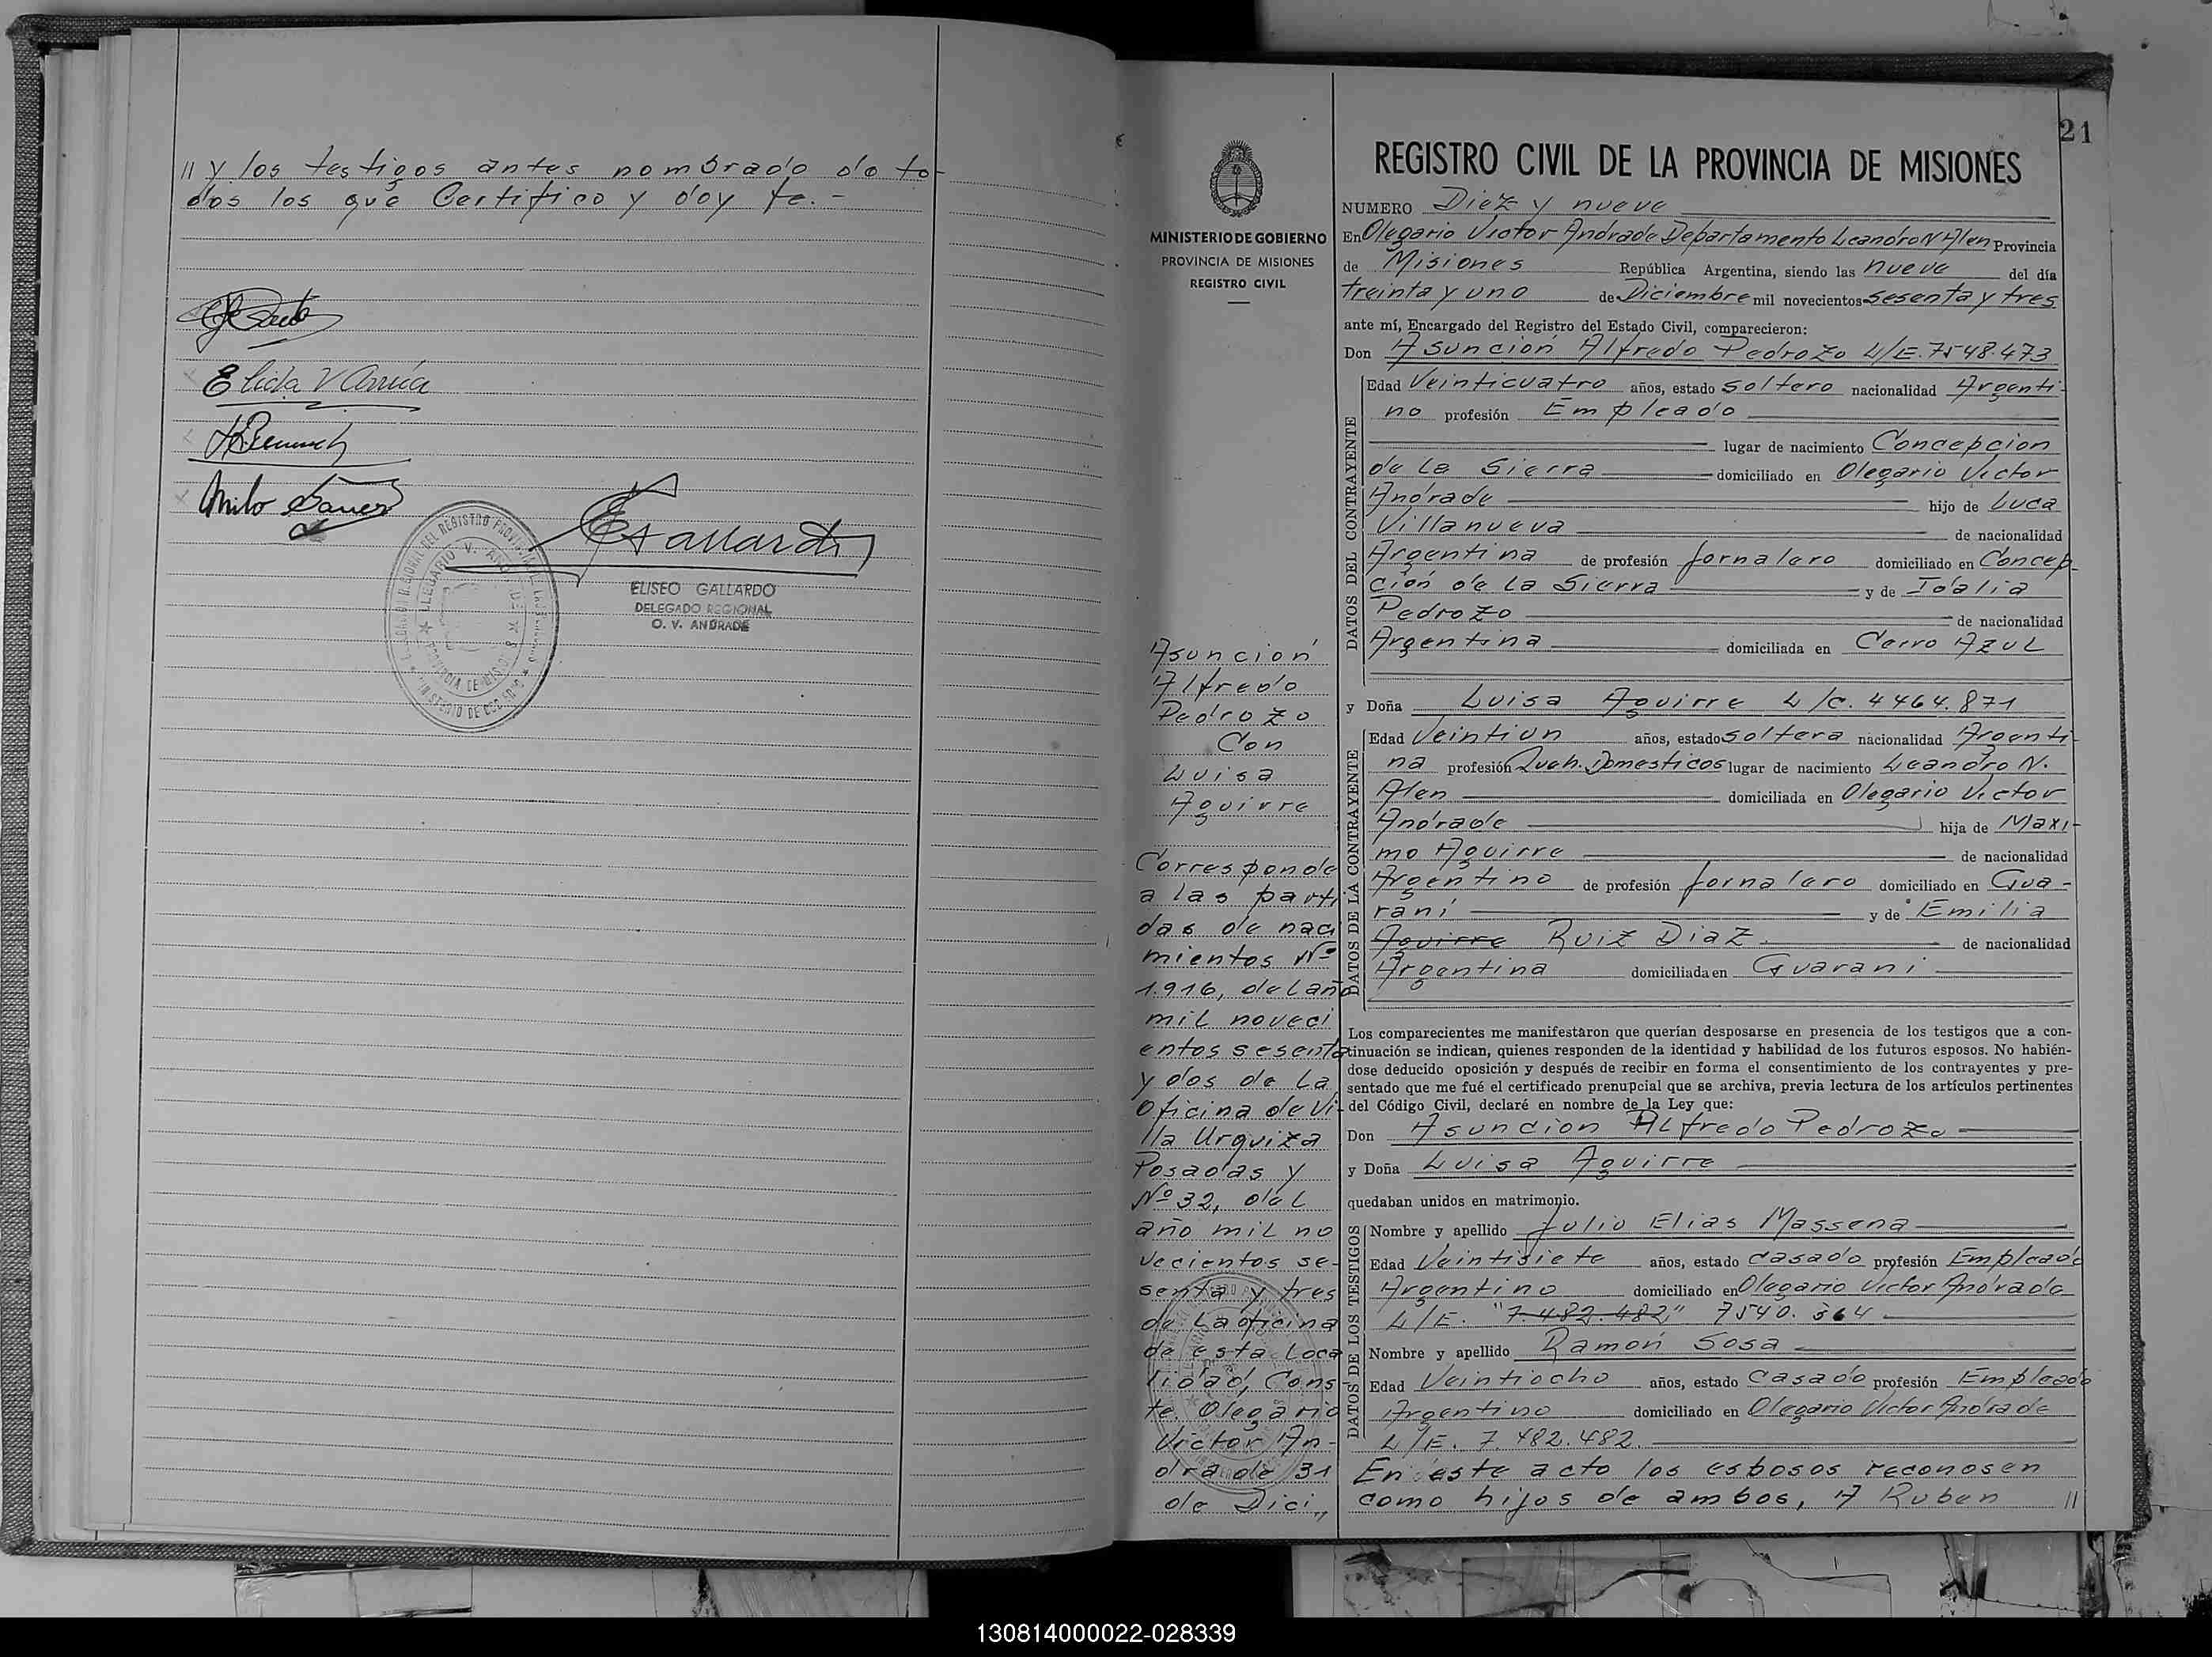 // y los testigos antes nombrado de to-
dos los que Certifico y doy fe.-
Elida V
Milo
ELISEO GALLARDO
DELEGADO REGIONAL
O. V. ANDRADE
21
MINISTERIO DE GOBIERNO
PROVINCIA DE MISIONES
REGISTRO CIVIL
Asunción
Alfredo
Pedrozo
Con
Luisa
Aguirre
Corresponde
a las parti
das de naci
mientos Nº
1.916, del año
mil noveci
entos sesenta
y dos de La
Oficina de Vi-
lla Urquiza
Posadas y
Nº 32, del
año mil no
vecientos se-
senta y tres
de La oficina
de esta Loca
lidad, Cons-
te. Olegario
Victor An-
drade 31
de Dici,,
REGISTRO CIVIL DE LA PROVINCIA DE MISIONES
NUMERO Diez y nueve
En Olegario Victor Andrade Departamento Leandro N Alen Provincia
de Misiones República Argentina, siendo las nueve del día
treinta y uno de Diciembre mil novecientos sesenta y tres
ante mí, Encargado del Registro del Estado Civil, comparecieron:
Don Asunción Alfredo Pedrozo L/E. 7548.473
DATOS DEL CONTRAYENTE
Edad Veinticuatro años, estado soltero nacionalidad Argenti-
no profesión Empleado
lugar de nacimiento Concepcion
de La Sierra domiciliado en Olegario Victor
Andrade hijo de Luca
Villanueva de nacionalidad
Argentina de profesión jornalero domiciliado en Concep-
ción de La Sierra y de Idalia
Pedrozo de nacionalidad
Argentina domiciliada en Cerro AzuL
y Doña Luisa Aguirre L/C. 4464.871
DATOS DE LA CONTRAYENTE
Edad Veintiun años, estado soltera nacionalidad Argenti-
na profesión Queh. Domesticos lugar de nacimiento Leandro N.
Alen domiciliada en Olegario Victor
Andrade hija de Maxi-
mo Aguirre de nacionalidad
Argentino de profesión jornalero domiciliado en Gua-
raní y de Emilia
Aguirre Ruiz Diaz de nacionalidad
Argentina domiciliada en Guarani
Los comparecientes me manifestaron que querían desposarse en presencia de los testigos que a con-
tinuación se indican, quienes responden de la identidad y habilidad de los futuros esposos. No habién-
dose deducido oposición y después de recibir en forma el consentimiento de los contrayentes y pre-
sentado que me fué el certificado prenupcial que se archiva, previa lectura de los artículos pertinentes
del Código Civil, declaré en nombre de la Ley que:
Don Asuncion ALfredo Pedrozo
y Doña Luisa Aguirre
quedaban unidos en matrimonio.
DATOS DE LOS TESTIGOS
Nombre y apellido Julio Elias Massena
Edad Veintisiete años, estado casado profesión Empleado
Argentino domiciliado en Olegario Victor Andrade
L/E. "7.482.482," 7540.564
Nombre y apellido Ramón Sosa
Edad Veintiocho años, estado casado profesión Empleado
Argentino domiciliado en Olegario Victor Andrade
L/E. 7 482.482.
En este acto los esbosos reconosen
como hijos de ambos, A Ruben //
130814000022-028339